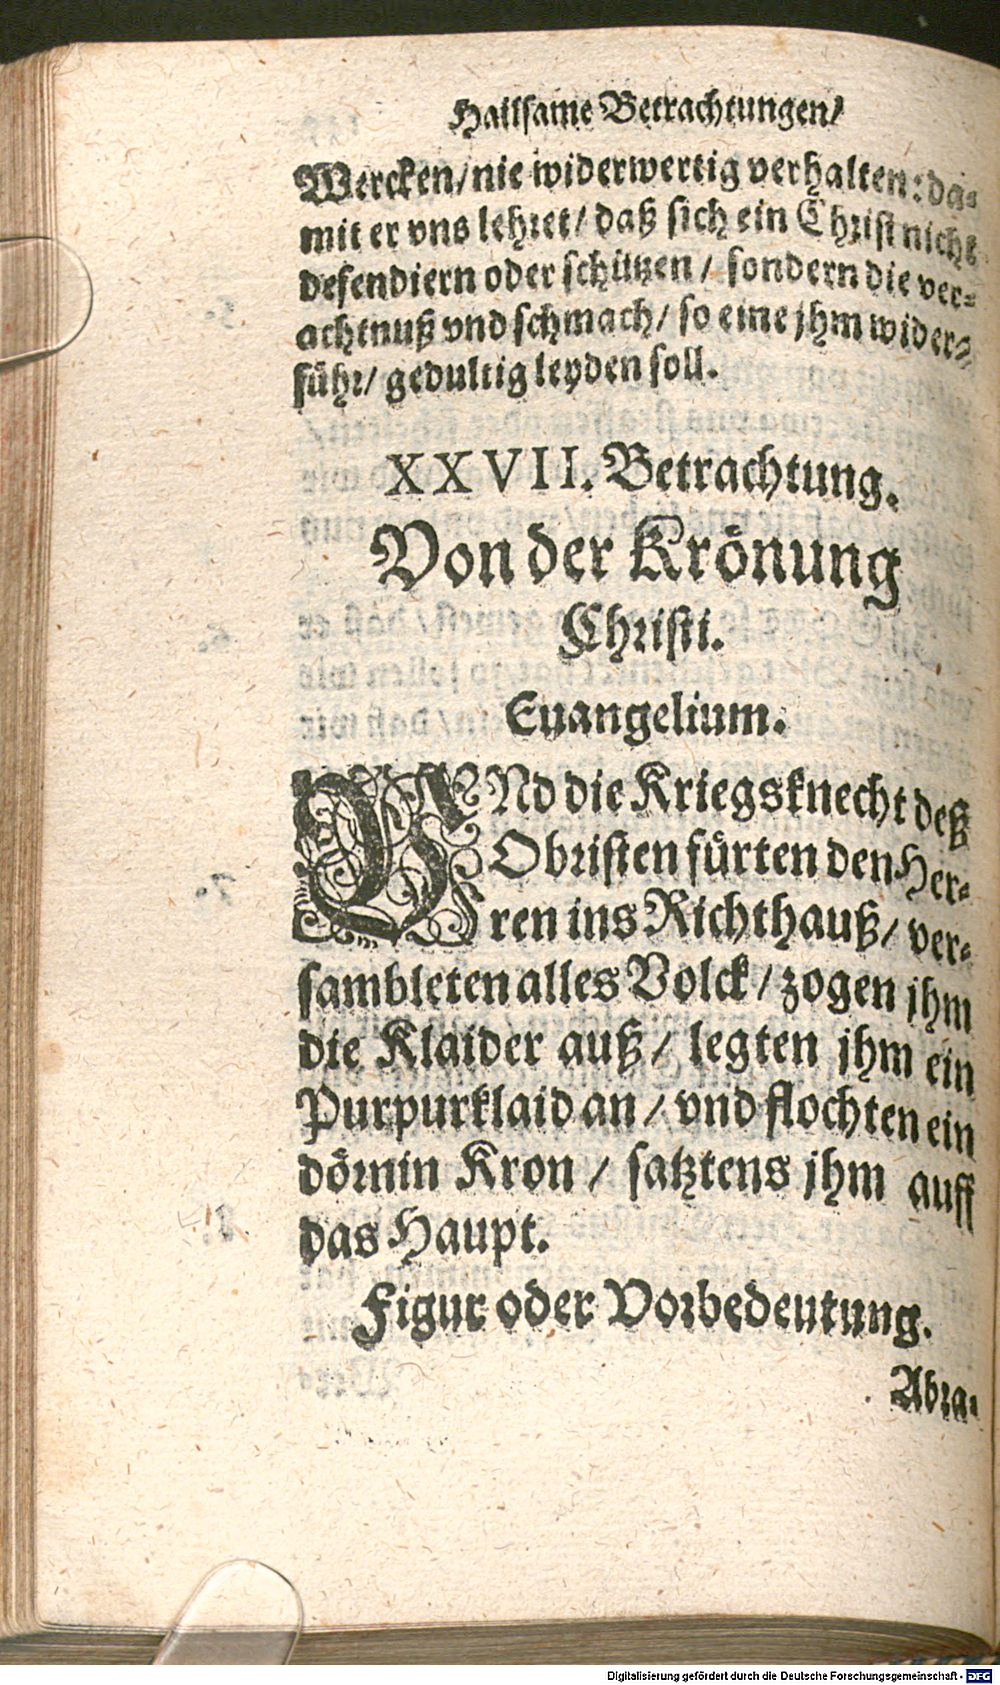 Hailsame Betrachtungen/
Wercken/ nie widerwertig verhalten: da-
mit er vns lehret/ daß sich ein Christ nicht
defendiern oder schützen/ sondern die ver-
achtnuß vnd schmach/ so eine jhm wider-
führ/ gedultig leyden soll.
XXVII. Betrachtung.
Von der Krönung
Christi.
Euangelium.
VNd die Kriegsknecht deß
Obristen fürten den Her-
ren ins Richthauß/ ver-
sambleten alles Volck/ zogen jhm
die Klaider auß/ legten jhm ein
Purpurklaid an/ vnd flochten ein
dörnin Kron/ satztens jhm auff
das Haupt.
Figur oder Vorbedeutung.
Abra-
Digitalisierung gefördert durch die Deutsche Forschungsgemeinschaft - DFG